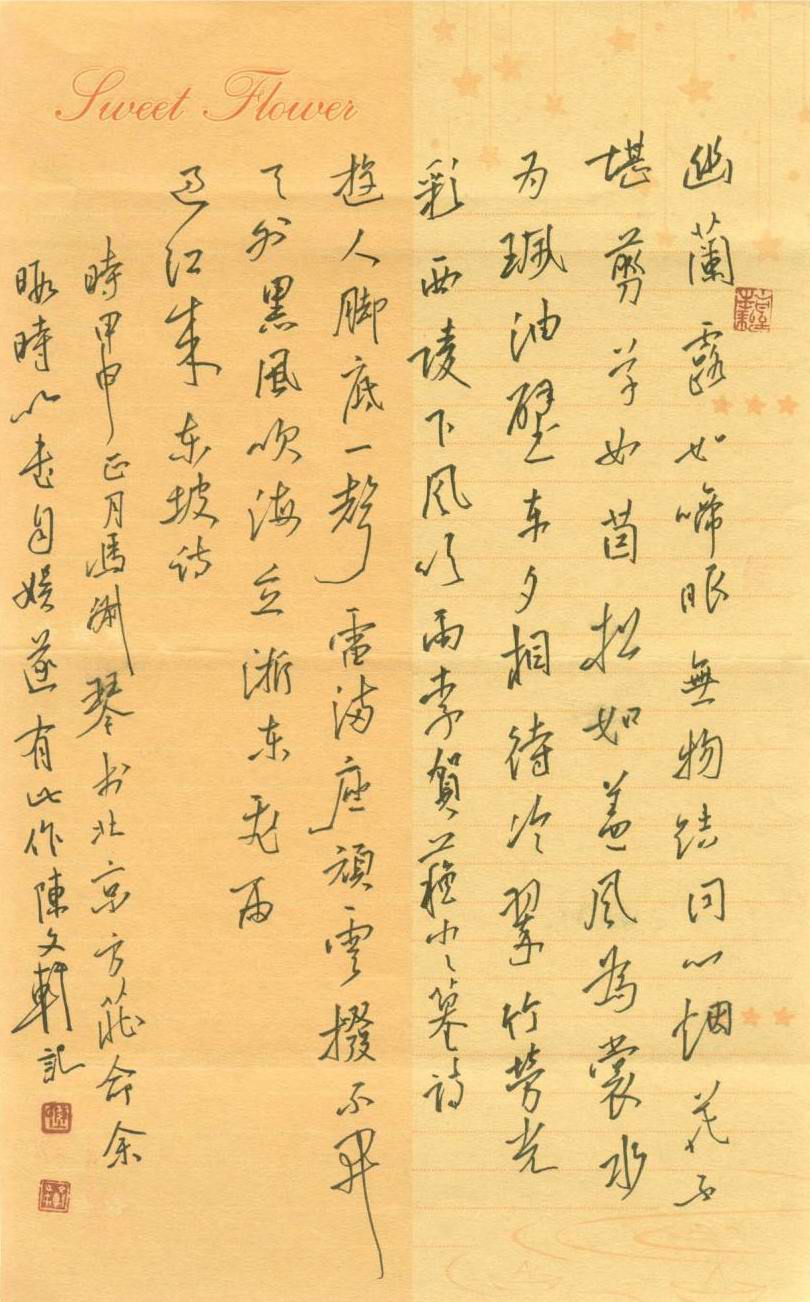 Sweet Flower
幽蘭露如啼眼無物結同心烟花不
堪剪草如茵松如盖風為裳水
為珮油壁車夕相待冷翠竹勞光
彩西陵下風吹雨李賀蘇小小墓詩
遊人脚底一聲雷满座頑雲撥不開
天外黑風吹海立浙東飛雨
過江來東坡詩
時甲申正月馮琴北京方莊命余
暇時以書自娱遂有此作陳文軒記